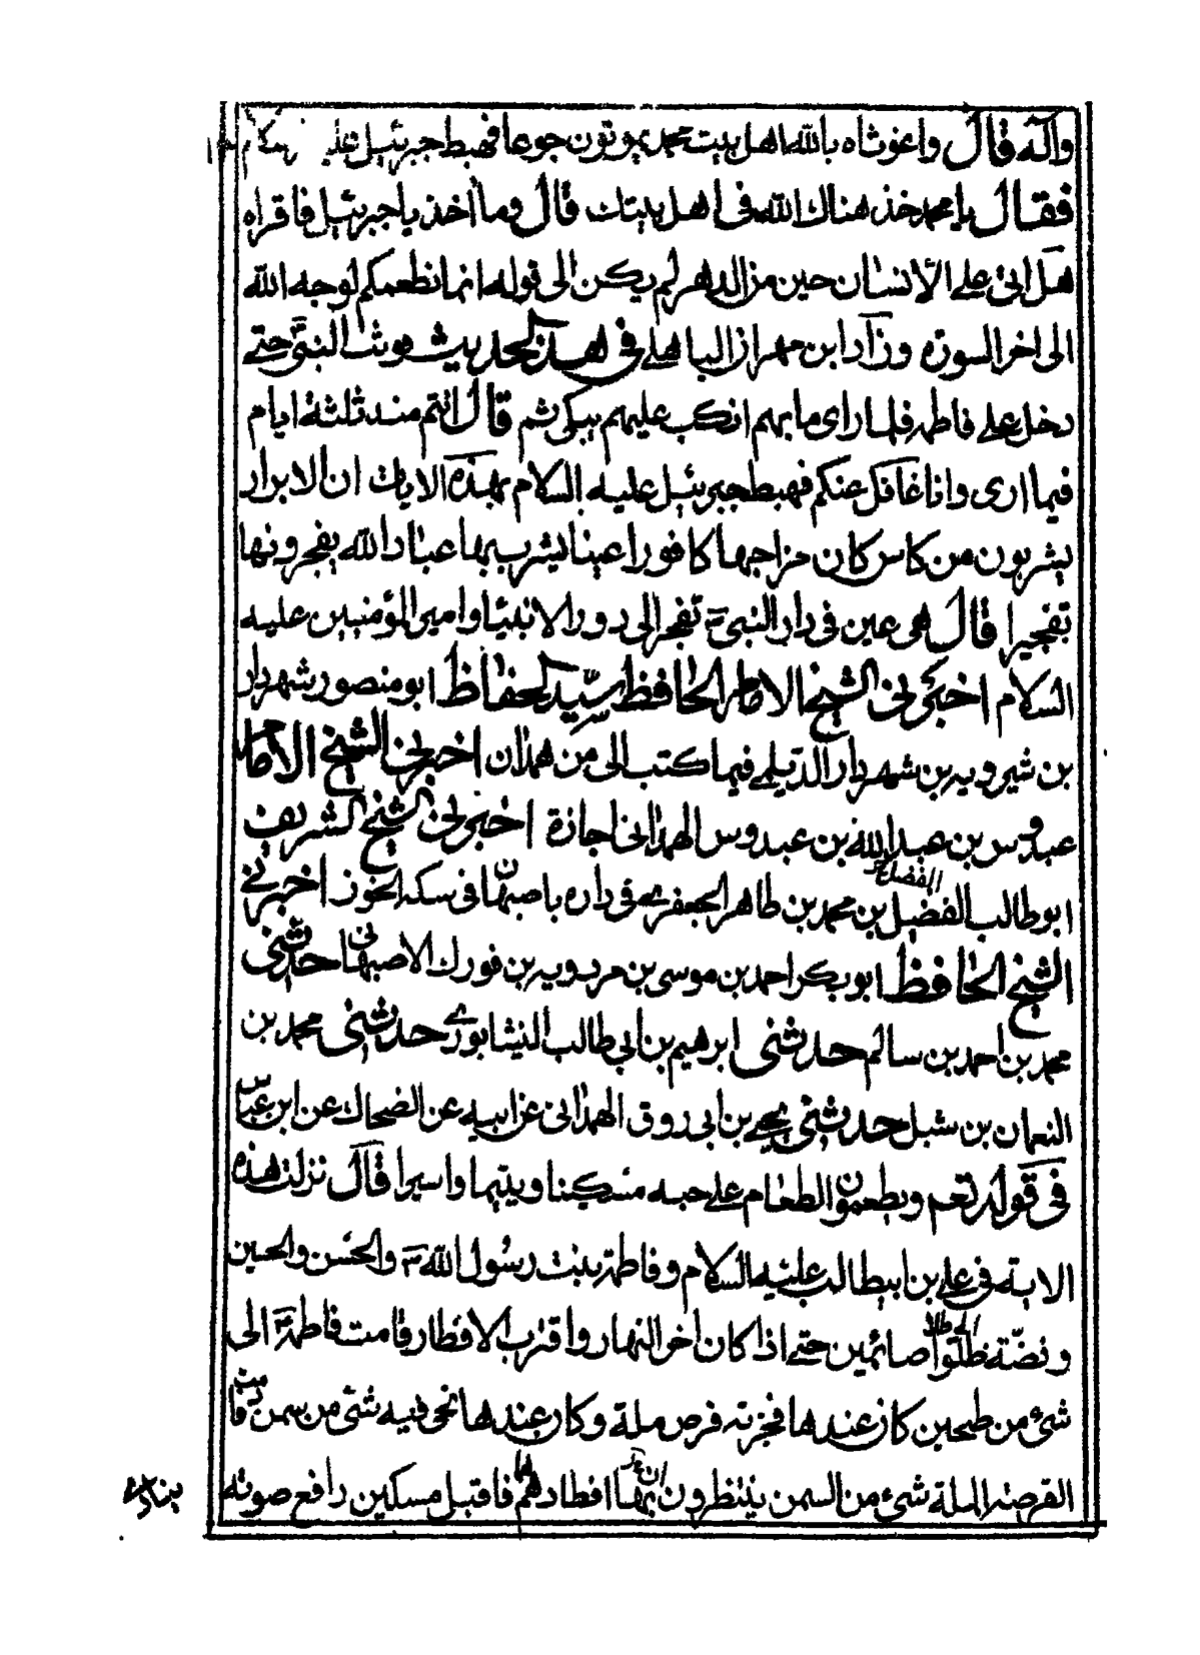 وآله قال واغوثاه بالله اهل بيت محمد يموتون جوعا فهبط جبرئيل عليه
فقال يا محمد خذ هناك الله فى اهل بيتك قال وما أخذ يا جبرئيل فاقراه
هل اتى على الأنسان حين من الدهر لم يكن الى قوله انما نطعمكم لوجه الله
الى اخر السورة وزاد ابن مهران الباهلى فى هذا الحديث فوثب النبى حتى
دخل على فاطمه فلما راى ما بهم انكب عليهم يبكى ثم قال انتم منذ ثلثة ايام
فيما ارى وانا غافل عنكم فهبط جبرئيل عليه السلام بهذه الايات ان الابرار
يشربون من كاس كان مزاجها كافورا عينا يشرب بها عباد الله يفجرونها
تفجيرا قال هى عين فى دار النبى تفجر الى دور الانبيا وامير المؤمنين عليه
السلام اخبرنى الشيخ الامام الحافظ سيد الحفاظ ابو منصور شهردار
بن شيرويه بن شهردار الديلمى فيما كتب الى من همذان اخبرنى الشيخ الامام
عبدوس بن عبد الله بن عبدوس الهمذانى اجازة اخبرنى الشيخ الشريف
ابو طالب الفضيل بن محمد بن طاهر الجعفرى فى داره باصبهان فى سكه الخوز اخبرنى
الشيخ الحافظ ابو بكر احمد بن موسى بن مردويه بن فورك الاصبهانى حدثنى
محمد بن احمد بن سالم حدثنى ابرهيم بن ابى طالب النيشابورى حدثنى محمد بن
النعمان بن شبل حدثنى يحيى بن ابى روق الهمدانى عن ابيه عن الضحاك عن ابن عباس
فى قوله تعم ويطعمون الطعام على حبه مسكينا ويتيما واسيرا قال نزلت هذه
الاية فى على بن ابيطالب عليه السلام وفاطمة بنت رسول الله والحسن والحسين
وفضة ظلوا صائمين حتى اذا كان اخر النهار واقترب الافطار قامت فاطمة الى
شىء من طحين كان عندها فخبزته قرص ملة وكان عندها نحى فيه شئ من سمن فادمت
القرصة الملة شىء من السمن ينتظرون بها افطارهم فاقبل مسكين رافع صوته
ينادى